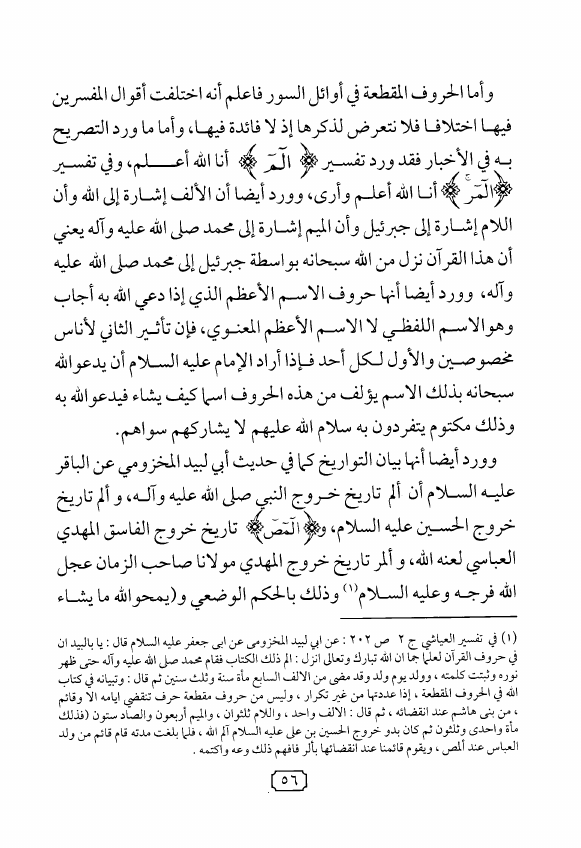 وأما الحروف المقطعة في أوائل السور فاعلم أنه اختلفت أقوال المفسرين
فيهـا اختلافـا فلا نتعرض لذكرها إذ لا فائدة فيهـا، وأما ما ورد التصريح
بـه في الأخبار فقد ورد تفسيـر ﴿ الٓمٓ ﴾ أنا الله أعـــلـم، وفي تفسيـر
﴿الٓمٓر﴾ أنـا الله أعلـم وأرى، وورد أيضا أن الألف إشـارة إلى الله وأن
اللام إشـارة إلى جبرئيل وأن الميم إشـارة إلى محمد صلى الله عليه وآله يعني
أن هـذا القرآن نزل مـن الله سبحانه بواسطة جبرئيل إلى محمد صلى الله عليه
وآله، وورد أيضا أنهـا حروف الاسـم الأعظـم الذي إذا دعي الله به أجاب
وهوالاسـم اللفظـي لا الاسـم الأعظم المعنـوي، فإن تأثـير الثاني لأناس
مخصوصـين والأول لـكل أحد فـإذا أراد الإمام عليه السـلام أن يدعوالله
سبحانه بذلك الاسم يؤلف من هذه الحروف اسما كيف يشاء فيدعوالله به
وذلك مكتوم يتفردون به سلام الله عليهم لا يشاركهم سواهم.
وورد أيضا أنها بيان التواريخ كما في حديث أبي لبيد المخزومي عن الباقر
عليـه السـلام أن ألم تاريخ خـروج النبي صلى الله عليه وآلـه، و ألم تاريخ
خروج الحسـين عليه السلام، و﴿الٓمٓصٓ﴾ تاريخ خروج الفاسق المهدي
العباسي لعنه الله، و ألمر تاريخ خروج المهدي مولانا صاحب الزمان عجل
الله فرجـه وعليه السـلام(١) وذلك بالحكم الوضعي و(يمحوالله ما يشـاء
(١) في تفسير العياشي ج ٢ ص ٢٠٢ : عن ابي لبيد المخزومى عن ابى جعفر عليه السلام قال : يا بالبيد ان
في حروف القرآن لعلما جما ان الله تبارك وتعالى انزل : الم ذلك الكتاب فقام محمد صلى الله عليه وآله حتى ظهر
نوره وثبتت كلمته ، وولد يوم ولد وقد مضى من الالف السابع مأة سنة وثلث سنين ثم قال : وتبيانه في كتاب
الله في الحروف المقطعة ، إذا عددتها من غير تكرار ، وليس من حروف مقطعة حرف تنقضي ايامه الا وقائم
، من بنى هاشم عند انقضائه ، ثم قال : الالف واحد ، واللام ثلثوان ، والميم أربعون والصاد ستون (فذلك
مأة واحدى وثلثون ثم كان بدو خروج الحسين بن على عليه السلام آلم الله ، فلما بلغت مدته قام قائم من ولد
العباس عند ألمص ، ويقوم قائمنا عند انقضائها بألر فافهم ذلك وعه واكتمه .
٥٦